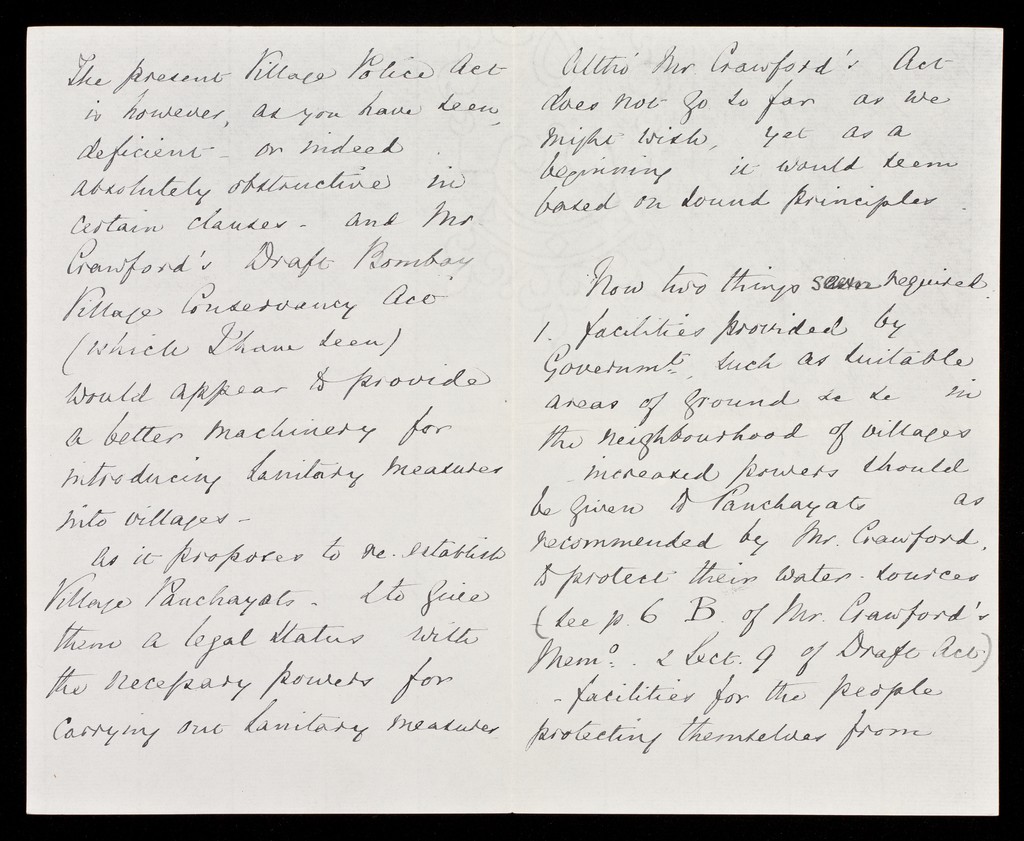 The present Village Police Act
is however, as you have seen,
deficient - or indeed
absolutely obstructive in
certain clauses - and Mr.
Crawford's Draft Bombay
Village Conservancy Act
(which I have seen)
would appear to provide
a better machinery for
introducing Sanitary measures
into villages -
As it proposes to re-establish
Village Panchayats - & to give
them a legal status with
the necessary powers for
carrying out Sanitary measures
Altho' Mr. Crawford's Act
does not go so far as we
might wish, yet as a
beginning it would seem
based on sound principles.
Now two things seem required.
1. facilities provided by
Governmt., such as suitable
areas of ground &c &c in
the neighbourhood of villages
- increased powers should
be given to Panchayats as
recommended by Mr. Crawford,
to protect their water-sources
(see p. 6 B. of Mr. Crawford's
Memo. & Sect. 9 of Draft Act.)
- facilities for the people
protecting themselves from